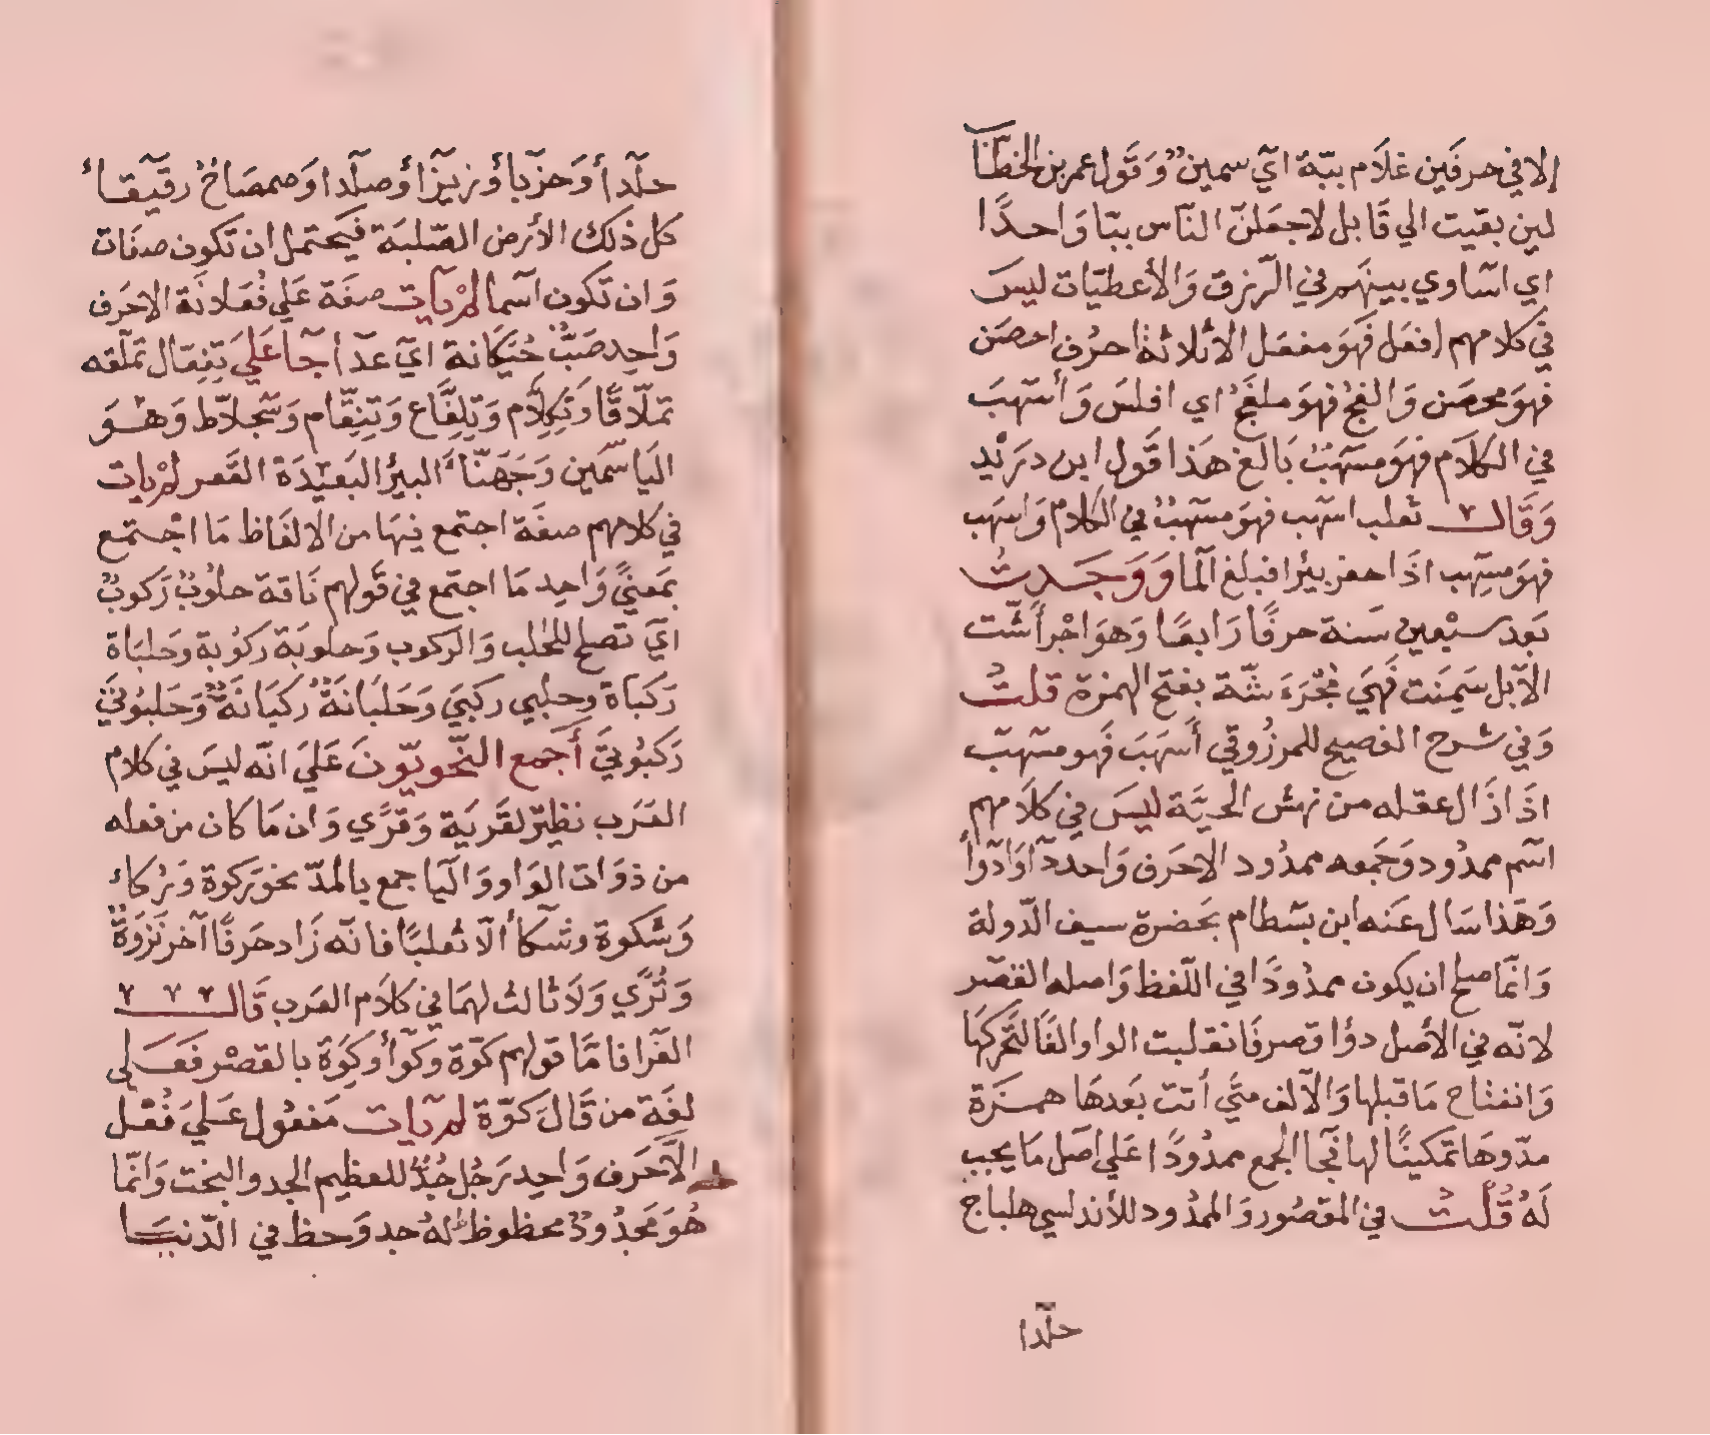 إلا في حرفين غلام ببّة اي سمين وقول عمر بن الخطاب
لين بقيت الي قابل لاجعلنّ الناس ببّا واحدًا
اي اساوي بينهم في الرزق والأعطيات ليس
في كلامهم افعل فهو مفعل الا ثلاثة احرف احصن
فهو محصن والفج فهو ملفج اي افلس وأسهب
في الكلام فهو مسهب بالغ هذا قول ابن دريد
وقال ثعلب اسهب فهو مسهب في الكلام واسهب
فهو مسهب اذا حفر بيرا فبلغ الما ووجدت
بعد سبعين سنة حرفًا رابعًا وهو اجرأشّت
الابل سمنت فهي مجرَءَشّة بفتح الهمزة قلت
وفي شرح الفصيح للمرزوقي أسهب فهو مسهب
اذا زال عقله من نهش الحيّة ليس في كلامهم
اسم ممدود وجمعه ممدود الا حرف واحد داوادوأ
وهذا سال عنه ابن بسطام بحضرة سيف الدّولة
وانما صلح ان يكون ممدودًا في اللّفظ واصله القصر
لانّه في الأصل دوٌا وقصر فانقلبت الواو الفًا لتحركها
وانفتاح ما قبلها والالف متي أتت بعدها همزة
مدّوها تمكينًا لها فجا الجمع ممدودًا علي اصل ما يجب
لهُ قُلت في المقصور والممدود للأندلسي هلباج
حلدا
حلدا أوحزبا أوزيزا أوصلدا وصمصاخ رقيقاء
كل ذلك الأرض الصّلبة فيحتمل ان تكون صفات
وان تكون اسما لم يات صفة علي فُعَلانة الا حرف
واحد ضبّ حُيَكانة اي عدا جا علي تِفِعّال تملّقه
تملّاقًا وتكلّام وتلقّاع وتنقّام وسجلاّط وهو
الياسمين وجهنّا البير البعيدة القعر لم يات
في كلامهم صفة اجتمع فيها من الالفاظ ما اجتمع
بمعنيً واحد ما اجتمع في قولهم ناقة حلوب ركوب
اي تصلح للحلب والركوب وحلوبة ركوبة وحلباة
ركباة وحلبي ركبي وحلبانة ركبانة وحلبوتيَ
ركبوتيَ أجمع النّحويّون علي انّه ليس في كلام
العرب نظير لقرية وقرًي وان ما كان من فعله
من ذوات الواو واليا جمع بالمدّ نحو ركوة وركاء
وشكوة وشكا ألا ثعلبًا فانّه زاد حرفًا آخر نزوة
ونُزًي ولا ثالث لهما في كلام العرب قال
الفرا فامّا قولهم كوّة وكوّا أوكُوة بالقصر فعلي
لغة من قال كوّة لم يات مفعول علي فُعْل
الّا حرف واحد رجُل جُدّ للعظيم الجد والبخت وانّما
هُو مجدُودٌ محظوظ له جد وحظ في الدّنيا